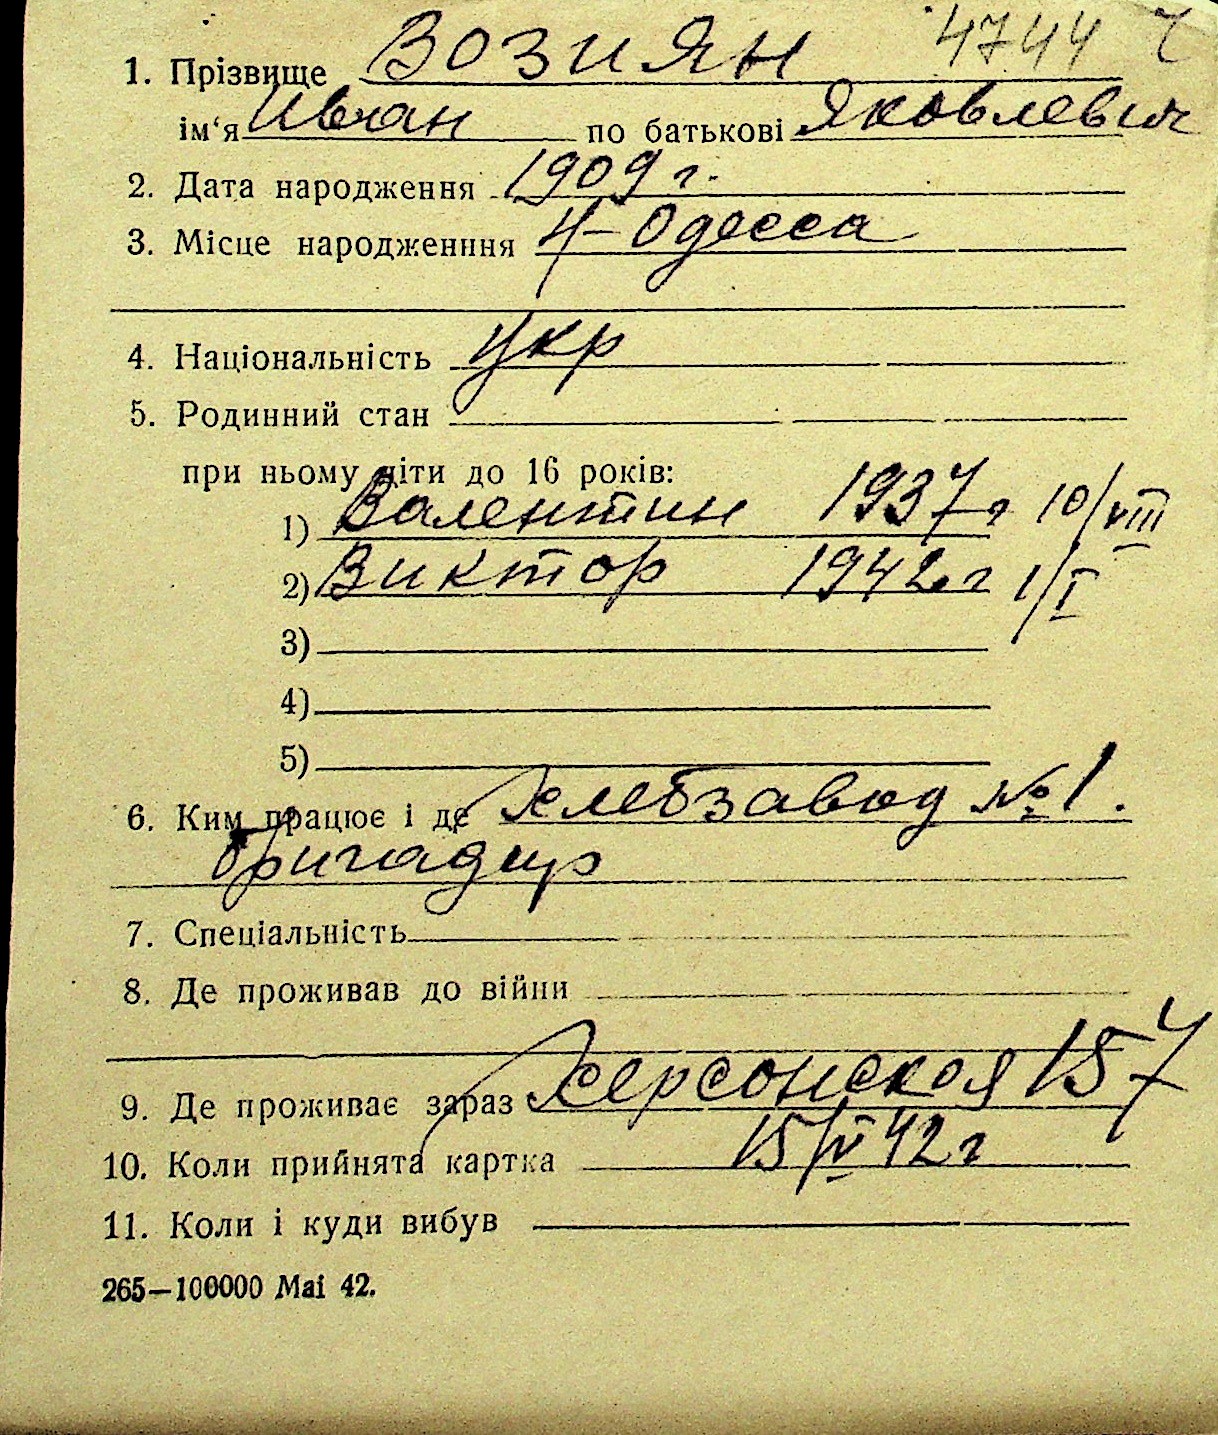 4744
1. Прізвище Возиян
ім‘я Иван по батькові Яковлевич
2. Дата народження 1909 г.
3. Місце народженння Н-Одесса
4. Національність укр
5. Родинний стан
при ньому діти до 16 років:
1) Валентин 1937 г 10/VIII
2) Виктор 1942 г 1/I
3)
4)
5)
6. Ким працює і де Хлебзавод № 1.
бригадир
7. Спеціальність
8. Де проживав до війни
9. Де проживає зараз Херсонская 157
10. Коли прийнята картка 15/IV 42 г
11. Коли і куди вибув
265—100000 Mai 42.